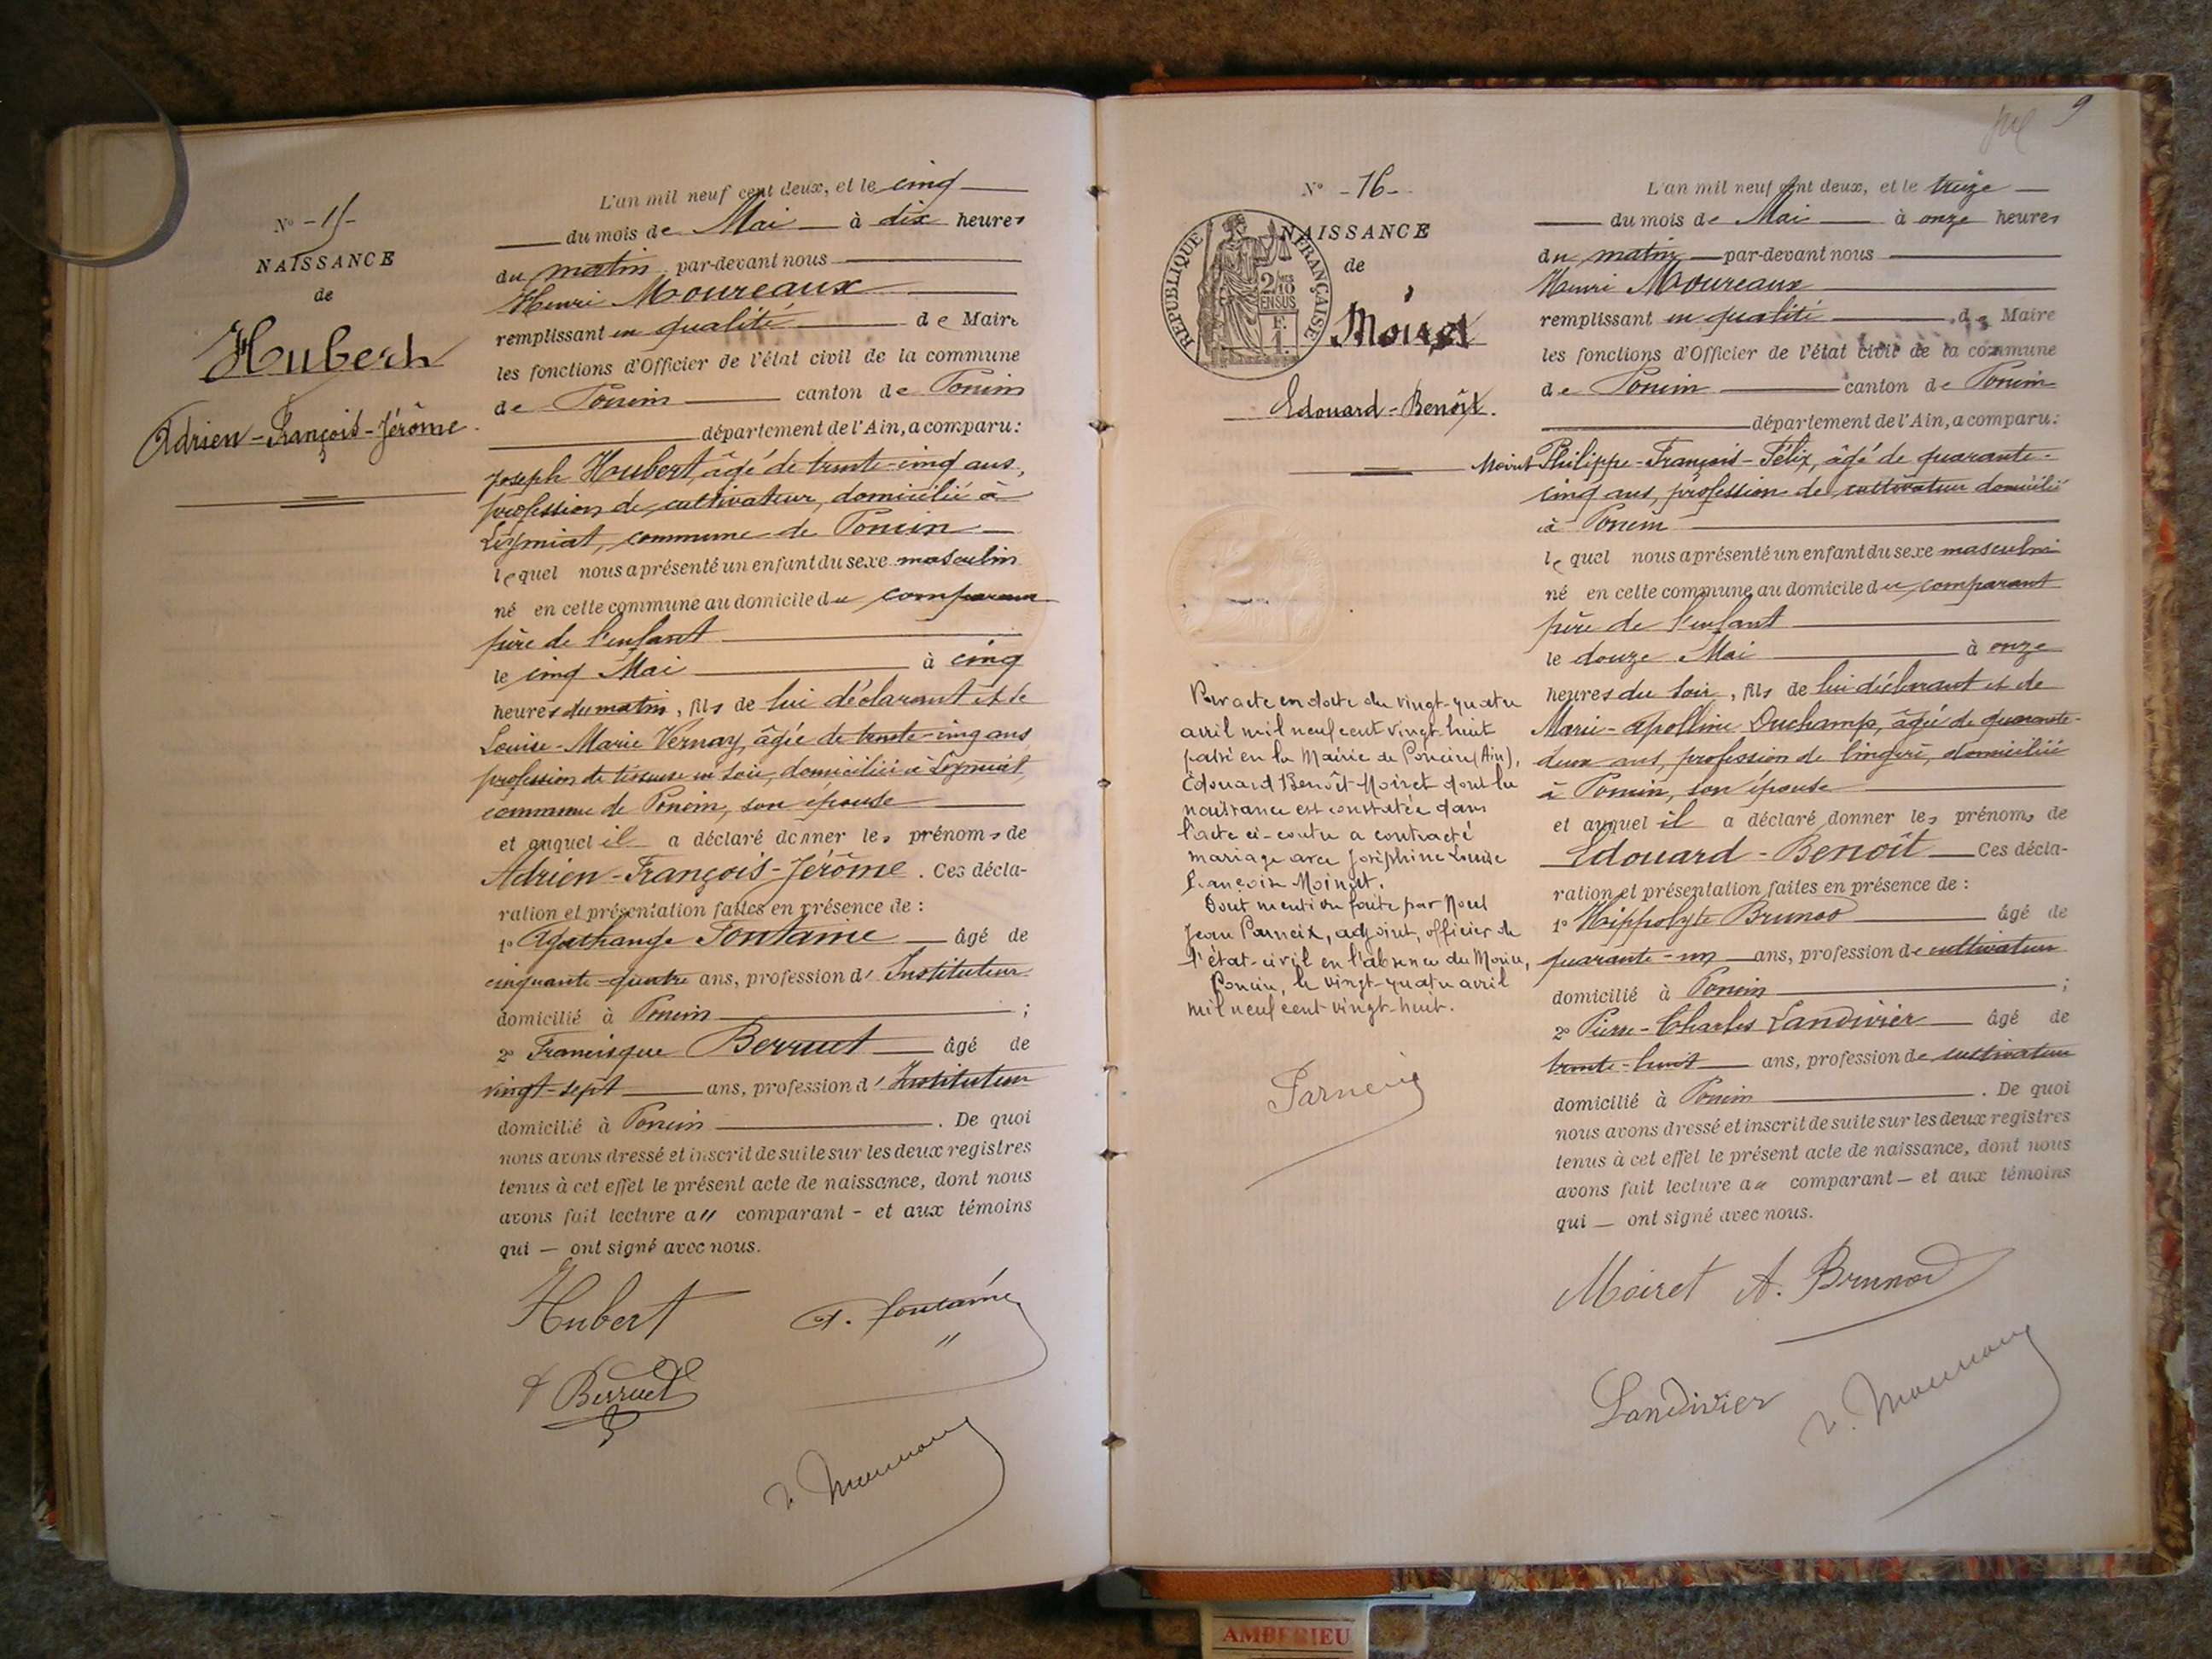 N° - 15 -
NAISSANCE
de
Hubert
Adrien-François-Jérôme.
L'an mil neuf cent deux, et le cinq
du mois de Mai à dix heures
du matin par-devant nous
Henri Moureaux
remplissant en qualité de Maire
les fonctions d'Officier de l'état civil de la commune
de Poncin canton de Poncin
département de l'Ain, a comparu:
Joseph Hubert, âgé de trente-cinq ans,
profession de cultivateur, domicilié à
Leymiat, commune de Poncin
lequel nous a présenté un enfant du sexe masculin
né en cette commune au domicile du comparant
père de l'enfant
le cinq Mai à cinq
heures du matin, fils de lui déclarant et de
Louise-Marie Vernay, âgée de trente-cinq ans
profession de tisseuse en soie, domiciliée à Leymiat,
commune de Poncin, son épouse
et auquel il a déclaré donner les prénoms de
Adrien-François-Jérôme. Ces décla-
ration et présentation faites en présence de :
1° Agathange Fontaine âgé de
cinquante-quatre ans, profession d'Instituteur
domicilié à Poncin ;
2° Francisque Berruet âgé de
vingt-sept ans, profession d'Instituteur
domicilié à Poncin. De quoi
nous avons dressé et inscrit de suite sur les deux registres
tenus à cet effet le présent acte de naissance, dont nous
avons fait lecture au comparant - et aux témoins
qui — ont signé avec nous.
Hubert A. Fontaine
F Berruet
9
N° - 16 -
NAISSANCE
de
RÉPUBLIQUE FRANÇAISE
2/10 EN SUS
Moiret
Edouard-Benoît.
Par acte en date du vingt-quatre
avril mil neuf cent vingt-huit
passé en la Mairie de Poncin (Ain),
Édouard Benoît Moiret dont la
naissance est constatée dans
l'acte ci-contre a contracté
mariage avec Joséphine Louise
Françoise Moinat.
Dont mention faite par Noël
Jean Parneix, adjoint, officier de
l'état-civil en l'absence du Maire,
Poncin, le vingt-quatre avril
mil neuf cent vingt-huit.
Parneix
L'an mil neuf cent deux, et le treize
du mois de Mai à onze heures
du matin par-devant nous
Henri Moureaux
remplissant en qualité de Maire
les fonctions d'Officier de l'état civil de la commune
de Poncin canton de Poncin
département de l'Ain, a comparu:
Moiret Philippe-François-Félix, âgé de quarante-
cinq ans, profession de cultivateur domicilié
à Poncin
lequel nous a présenté un enfant du sexe masculin
né en cette commune au domicile du comparant
père de l'enfant
le douze Mai à onze
heures du soir, fils de lui déclarant et de
Marie-Apolline Duchamp, âgée de quarante-
deux ans, profession de lingère, domiciliée
à Poncin, son épouse
et auquel il a déclaré donner les prénoms de
Edouard-Benoît Ces décla-
ration et présentation faites en présence de :
1° Hippolyte Brunod âgé de
quarante-un ans, profession de cultivateur
domicilié à Poncin ;
2° Pierre-Charles Landivier âgé de
trente-huit ans, profession de cultivateur
domicilié à Poncin. De quoi
nous avons dressé et inscrit de suite sur les deux registres
tenus à cet effet le présent acte de naissance, dont nous
avons fait lecture au comparant — et aux témoins
qui — ont signé avec nous.
Moiret A. Brunod
Landivier
AMBERIEU